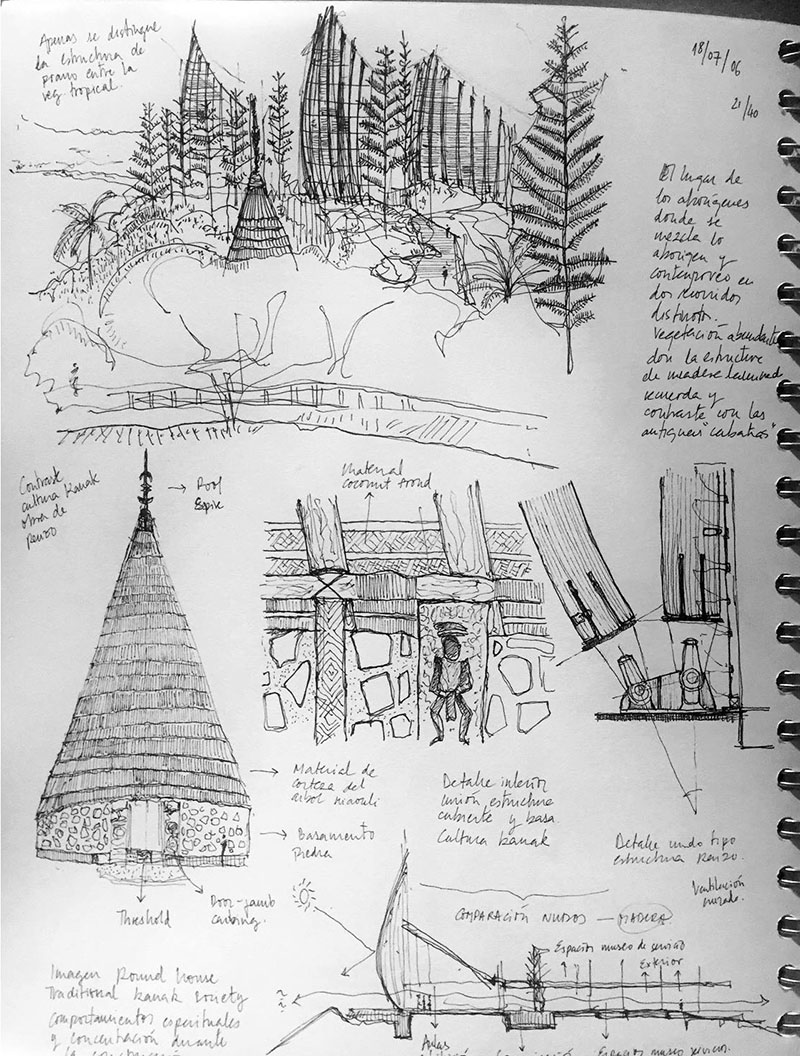 Apenas se distingue
la estructura de
piano entre la
veg. tropical.
18/07/06
21/40
El lugar de
los aborígenes
donde se
mezcla lo
aborigen y
en
dos recorridos
distintos.
Vegetación abundante
don la estructura
de madera laminada
recuerda y
contraste con las
antiguas "cabañas"
Contraste
cultura Kanak
obra de
Renzo
Roof
Spire
Material
coconut frond
Material de
corteza del
árbol niaouli
Basamento
Piedra
Door-jamb
carving.
Threshold
Detalle interior
unión estructura
cubierta y base
Cultura Kanak
Detalle nudo tipo
estructura Renzo.
Ventilación
COMPARACIÓN NUDOS — MADERA
Espacios museo de servicio
Exterior
Imagen Round house
Traditional Kanak society
comportamientos espirituales
y concentración durante
Aulas
Espacios museo servicios.